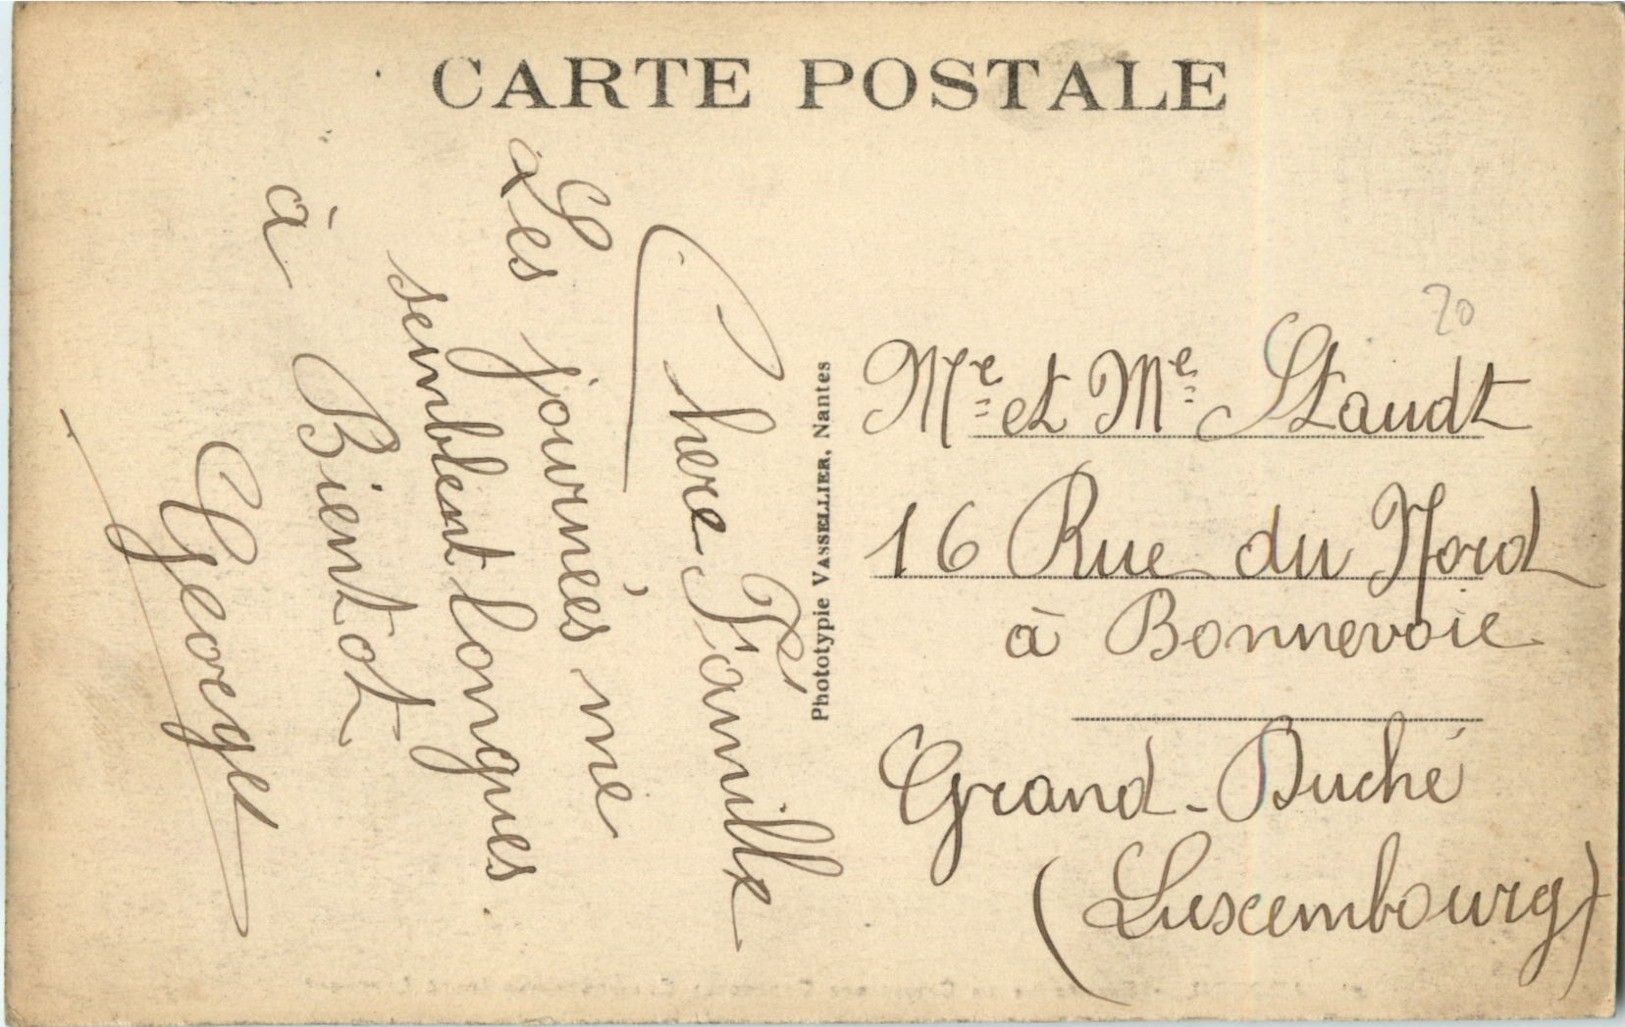 CARTE POSTALE
Chere Famille
Les journées me
semblent longues.
à Bientot
Georget
Photographie VASSELLIER, Nantes
70
Mre et Me Staudt
16 Rue du Nord
à Bonnevoie
Grand-Duché
(Luxembourg)